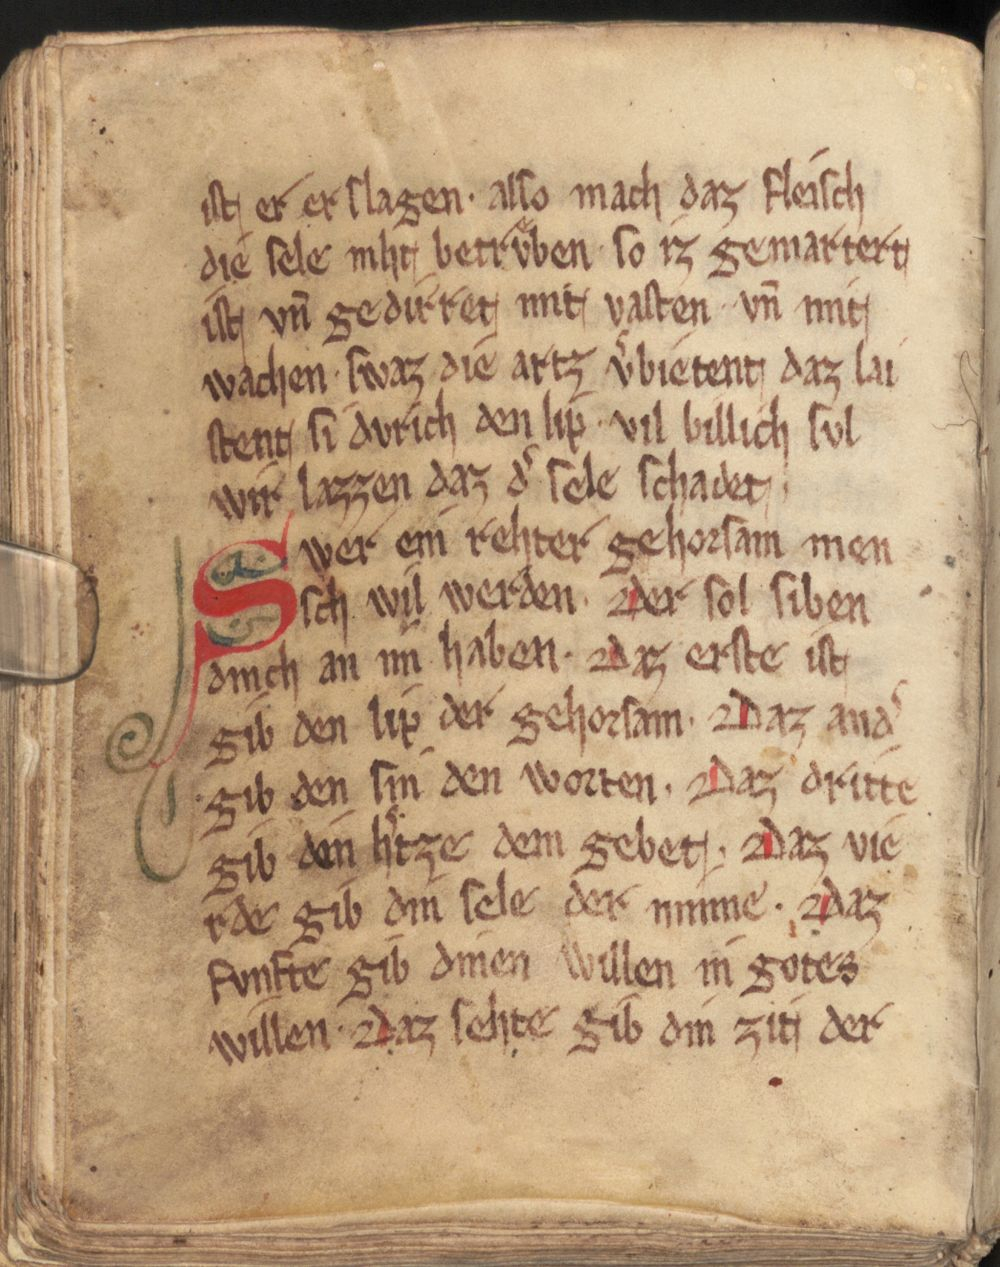 ist er er slagen · also mach daz fleisch
die sele niht betrvͤben · so iz gemartert
ist vn̄ gedirret mit vasten · vn̄ mit
wachen · swaz die artz v͛bietent daz lai
stent si dvrich den lip · vil billich svl
wir lazzen daz d͛ sele schadet ·
Swer ein rehter gehorsam men
sch wil werden · Der sol siben
dinch an im haben · Daz erste ist
gib den lip der gehorsam · Daz and͛
gib den sin den worten · Daz dritte
gib dein h͛tze dem gebet · Daz vie
rde gib din sele der minne · Daz
fvnfte gib dinen willen in gotes
willen · Daz sehte gib din zit der